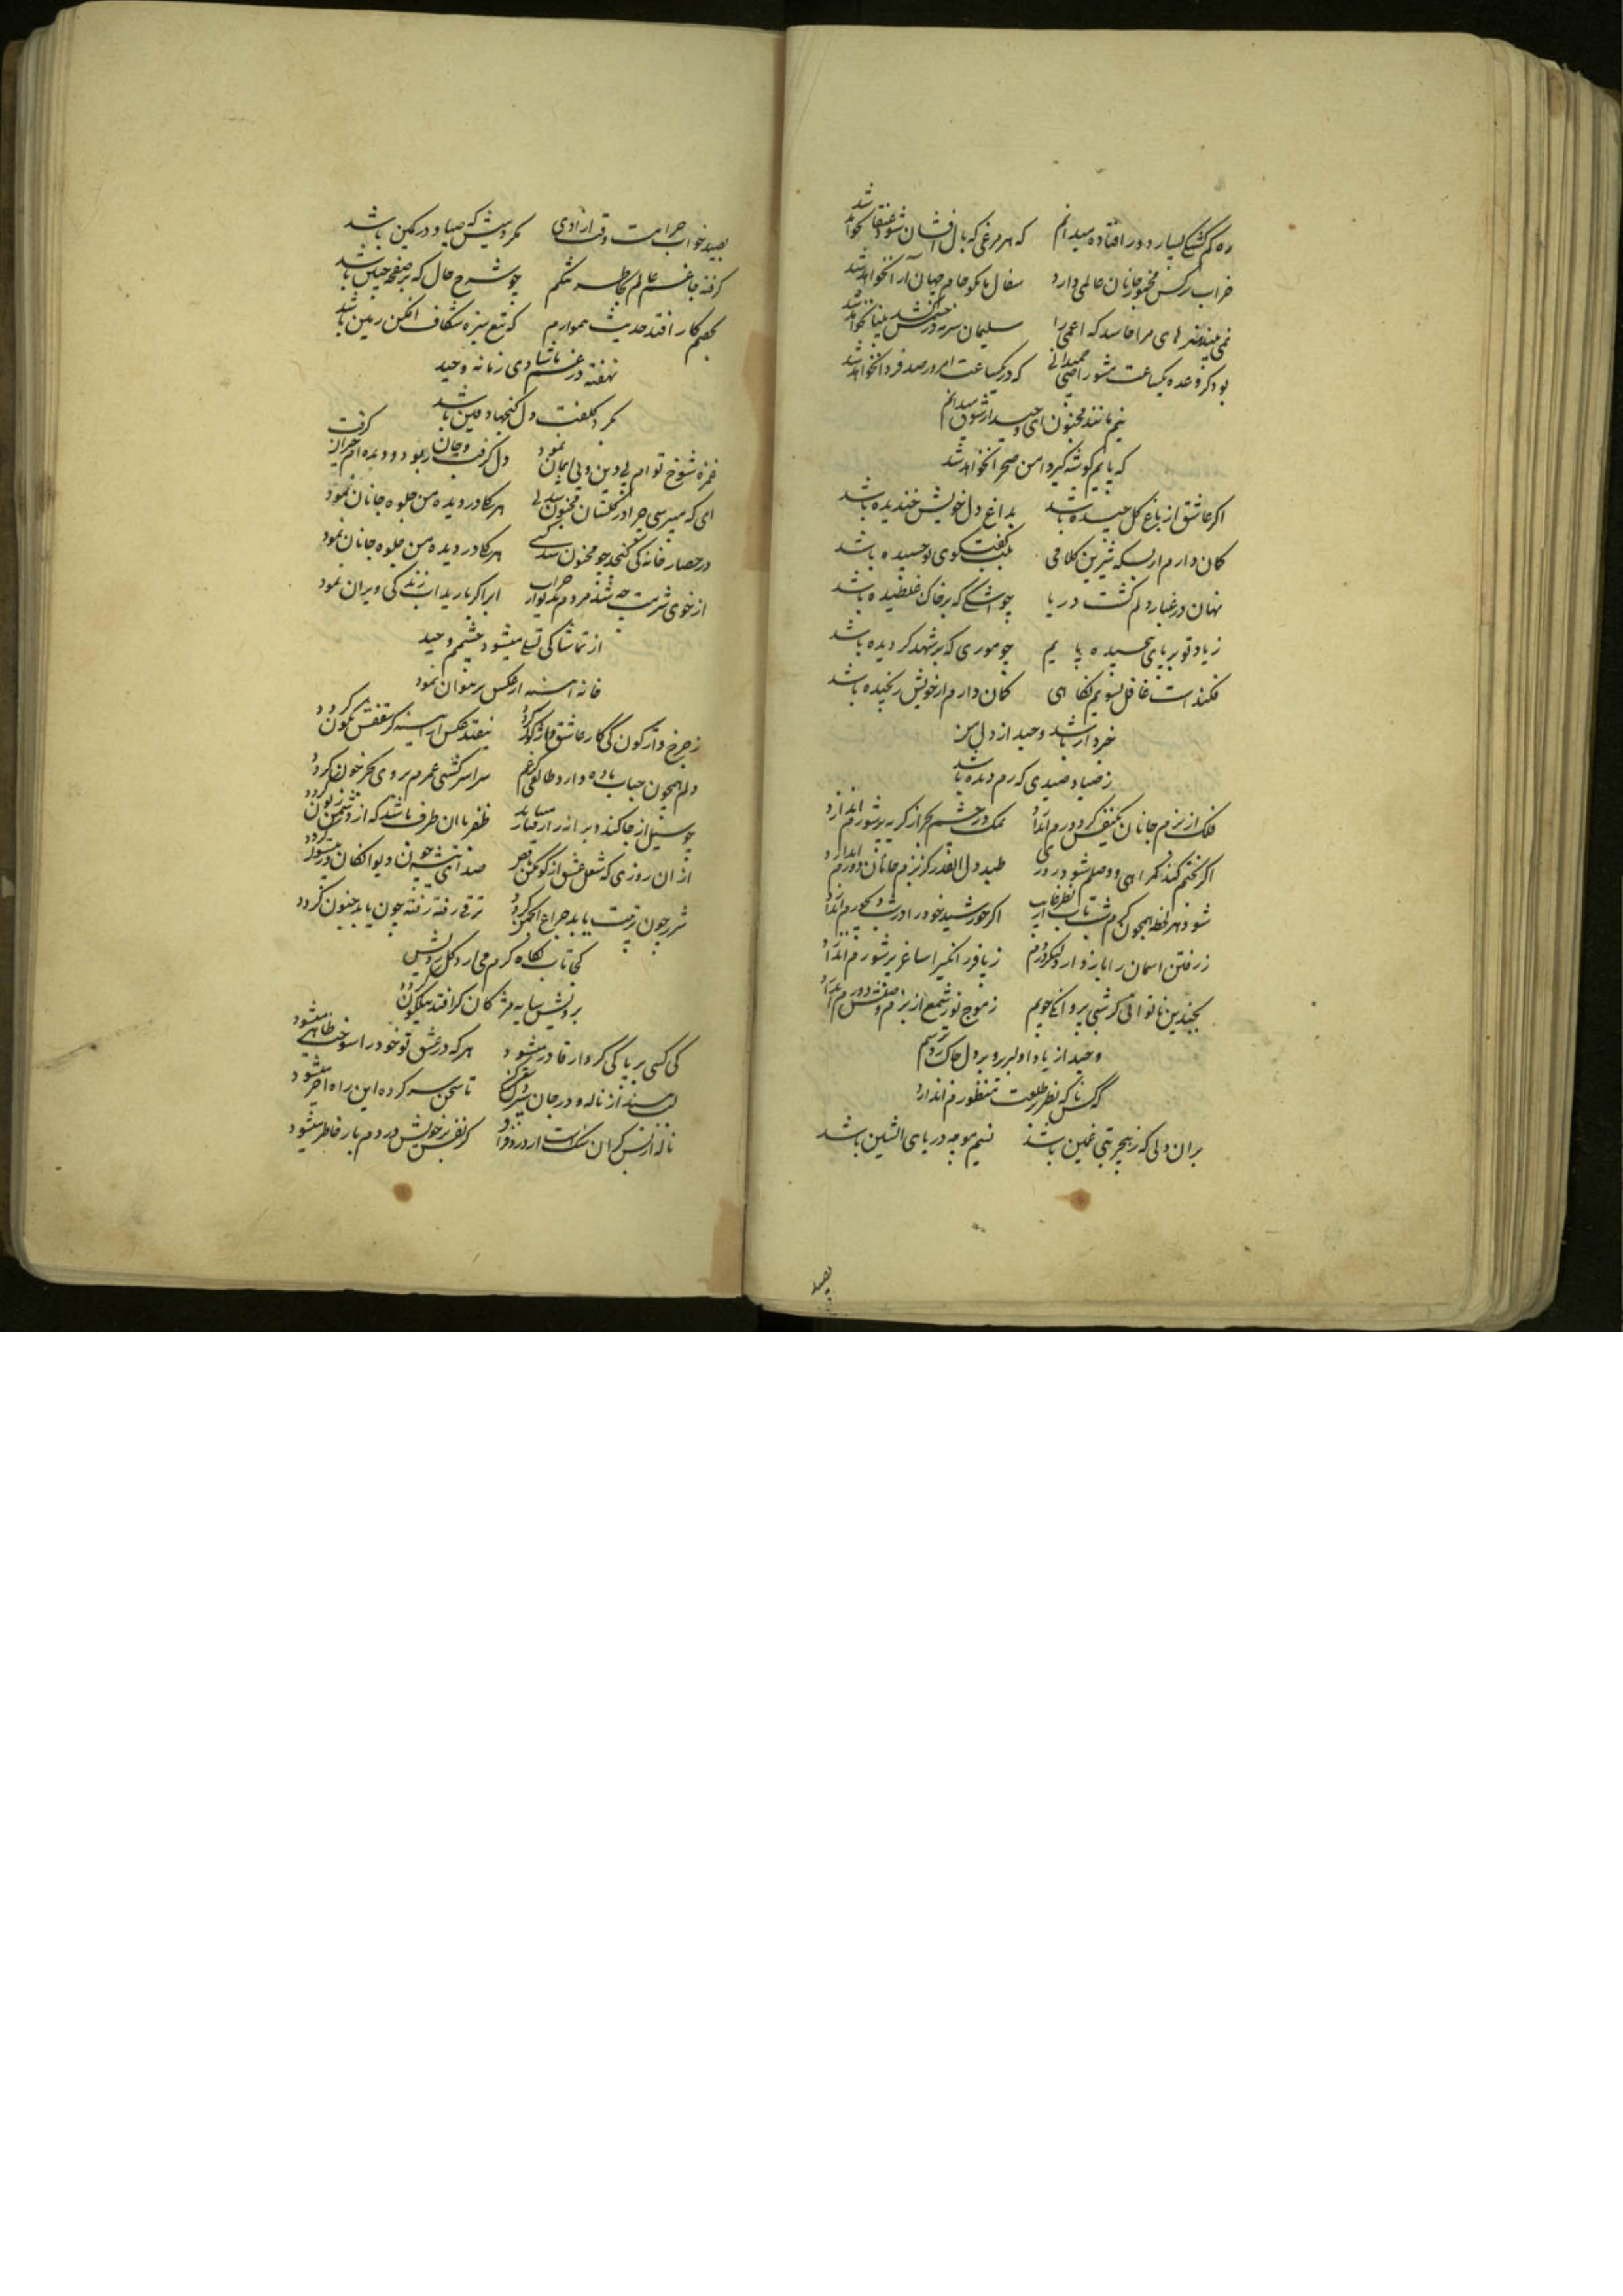 ره کم گشتگی بسیار دور افتاده میدانم که هر مرغی که بال افشان شود عنقا نخواهد شد
خراب نرگس مخمور جانان عالمی دارد سفال ما کم از جام جهان آرا نخواهد شد
نمی بیند هنرهای مرا حاسد که اعمی را سلیمان سرمه در چشمش کشد بینا نخواهد شد
بود گر وعده یکساعت مشو راضی نمیدانی که در یکساعت امروز صد فردا نخواهد شد
نیم مانند مجنون ای وحید از شوق میدانم
که پایم گوشه گیر دامن صحرا نخواهد شد
اگر عاشق از باغ گل چیده باشد بداغ دل خویش خندیده باشد
گمان دارم از بسکه شیرین کلامی بلب گفت‌گوی تو چسبیده باشد
نهان در غبار دلم گشت دریا چو اشکی که بر خاک غلطیده باشد
ز یاد تو بر پای چسبیده پایم چو موری که بر شهد گردیده باشد
فکند است غافل بسویم نگاهی گمان دارم از خویش رنجیده باشد
خبردار باشد وحید از دل من
ز صیاد صیدی که رم دیده باشد
فلک از بزم جانان یکنفس گر دورم اندازد نمک در چشم بحر از گریه پر شورم اندازد
اگر بختم کند همراهی و وصلم شود روزی طپد دل آنقدر کز بزم جانان دورم اندازد
شود هر لحظه همچون کرم شب تاب از نظر غایب اگر خورشید خود را در شب دیجورم اندازد
ز رفتن آسمان را باز دارد
بچندین ناتوانی گر شبی پروانگی جویم ز موج نور شمع از بزم وصلش دورم اندازد
وحید از یاد او
که کس تا که نظر بر طلعت منظورم اندازد
بر آن دلی که ز هجر بتی غمین باشد نسیم موجه دریای آتشین باشد
بصید
بصید خواب حرامست وقت آزادی مگر دمیش که صیاد در کمین باشد
گرفته جا غم عالم بخاطر تنگم چو شرح حال که بر صفحه جبین باشد
بخصم کار افتد حدیث هموارم که تیغ سبزه شکاف افکن زمین باشد
نهفته در غم ما شادی زمانه وحید
بگرد کلفت دل گنجها دفین باشد
غمزه شوخ توام بی دین و بی ایمان نمود دل گرفت و جان ربود و دیده ام حیران گرفت
ای که میپرسی چرا در گلستان مجنون شدی هر کجا در دیده من جلوه جانان نمود
در حصار خانه کی گنجد چو مجنون شد کسی هر کجا در دیده من جلوه جانان نمود
از خوی شرمت چه شد مردم خراب ابر اگر بارید آب زندگی ویران نمود
از تماشا کی تسلی میشود چشمم وحید
خانه آئینه از عکس پر نتوان نمود
ز چرخ واژگون کی کار عاشق واژگون گردد نیفتد عکس از آئینه گر سقفش نگون گردد
دلم همچون حباب باده دارد طالعی کز غم سراسر کشتی عمرم بروی بحر خون گردد
چو سیل از جا کند ویرانه را ظفر با آن طرف باشد که از دشمن زبون گردد
از آن روزی که شغل عشق از کوهکن صدای تیشه چون
شرر چون تربیت یابد چراغ انجمن گردد ترقی رفته رفته چون بیابد جنون گردد
کجا تاب نگاه گرم می آرد گل رویش
برویش سایه مژگان گر افتد نیلگون گردد
کی کسی بر پاکی کردار قادر میشود هر که در عشق تو خود را سوخت طاهر میشود
لب مبند از ناله تا سخن سر کرده این راه آخر میشود
ناله از بس گران سنگ است گر نفس بر خویش دزدم بار خاطر میشود